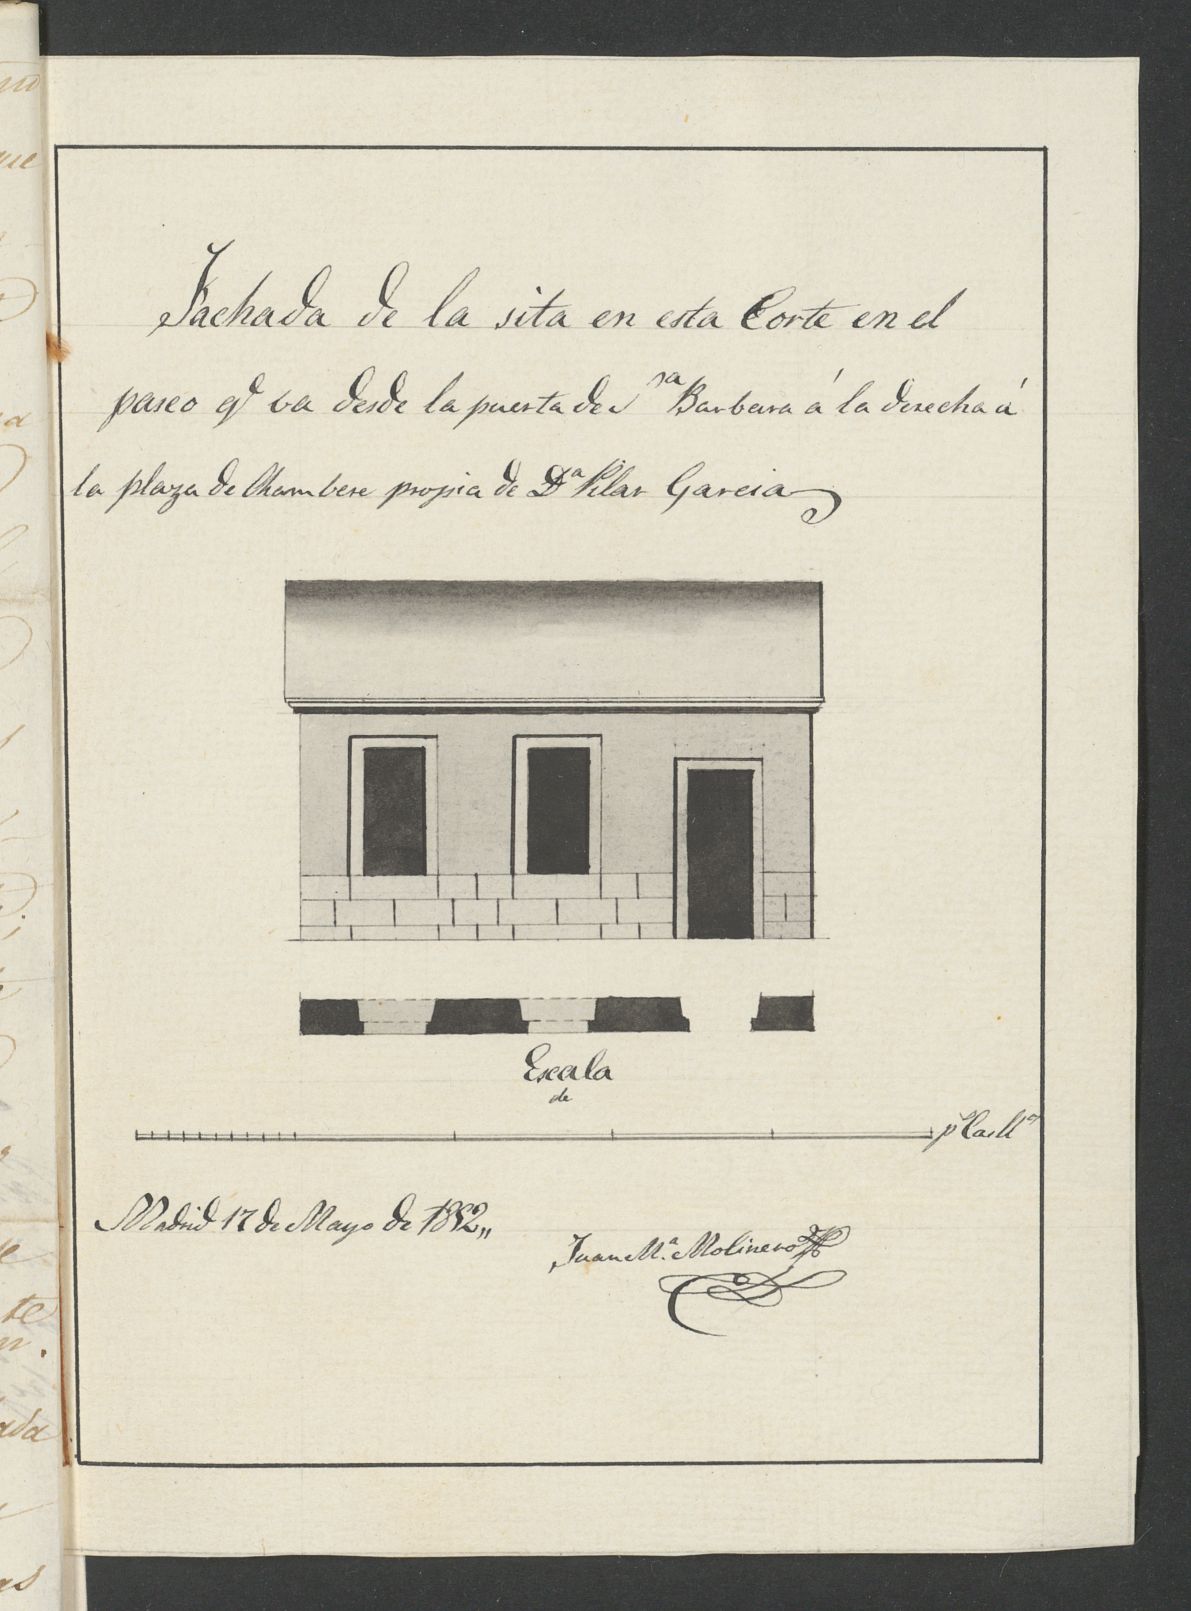 Fachada de la sita en esta Corte en el
paseo qᵉ va desde la puerta de Sᵗᵃ Barbara á la derecha á
la plaza de Chambere propia de Dᵃ Pilar Garcia
Escala
de
pˢ Castˢ
Madrid 17 de Mayo de 1852,,
Juan Mᵃ. Molinero
que
te
ada
as